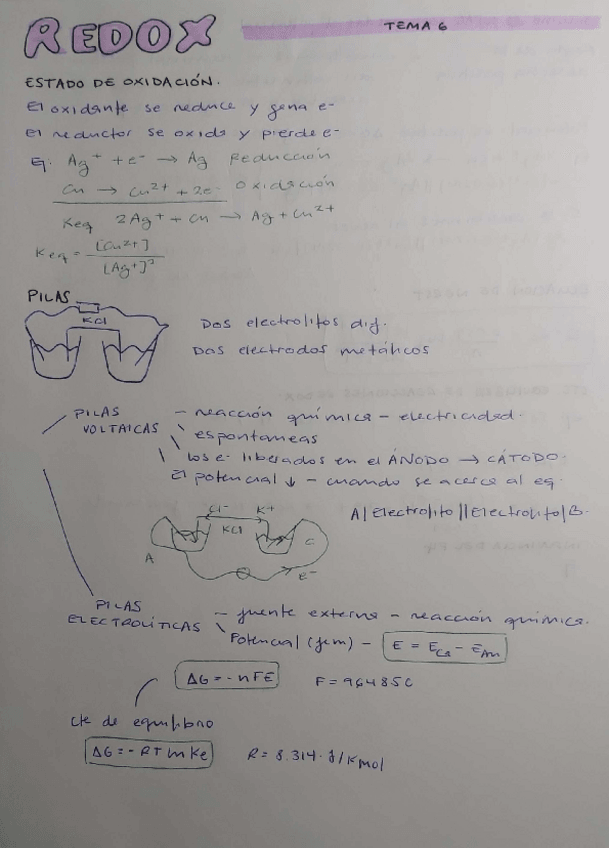 REDOX
TEMA 6
ESTADO DE OXIDACIÓN.
El oxidante se reduce y gana e-
el reductor se oxida y pierde e-
Ej: Ag⁺ + e- → Ag Reducción
Cu → Cu²⁺ + 2e- Oxidación
Keq 2Ag⁺ + Cu → Ag + Cu²⁺
Keq = [Cu²⁺] / [Ag⁺]²
PILAS
KCl
Dos electrolitos dif.
Dos electrodos metálicos
PILAS VOLTAICAS - reacción química - electricidad.
\ espontaneas
\ los e- liberados en el ÁNODO → CÁTODO.
El potencial ↓ - cuando se acerca al eq.
A|Electrolito||Electrolito|B.
Cl- K+
KCl
A C
e-
PILAS ELECTROLÍTICAS - fuente externa - reacción química.
\ Potencial (fem) - E = E_Ca - E_An
ΔG = -nFE F = 96485C
cte de equilibrio
ΔG = -RT ln Ke R = 8.314 · J/K mol